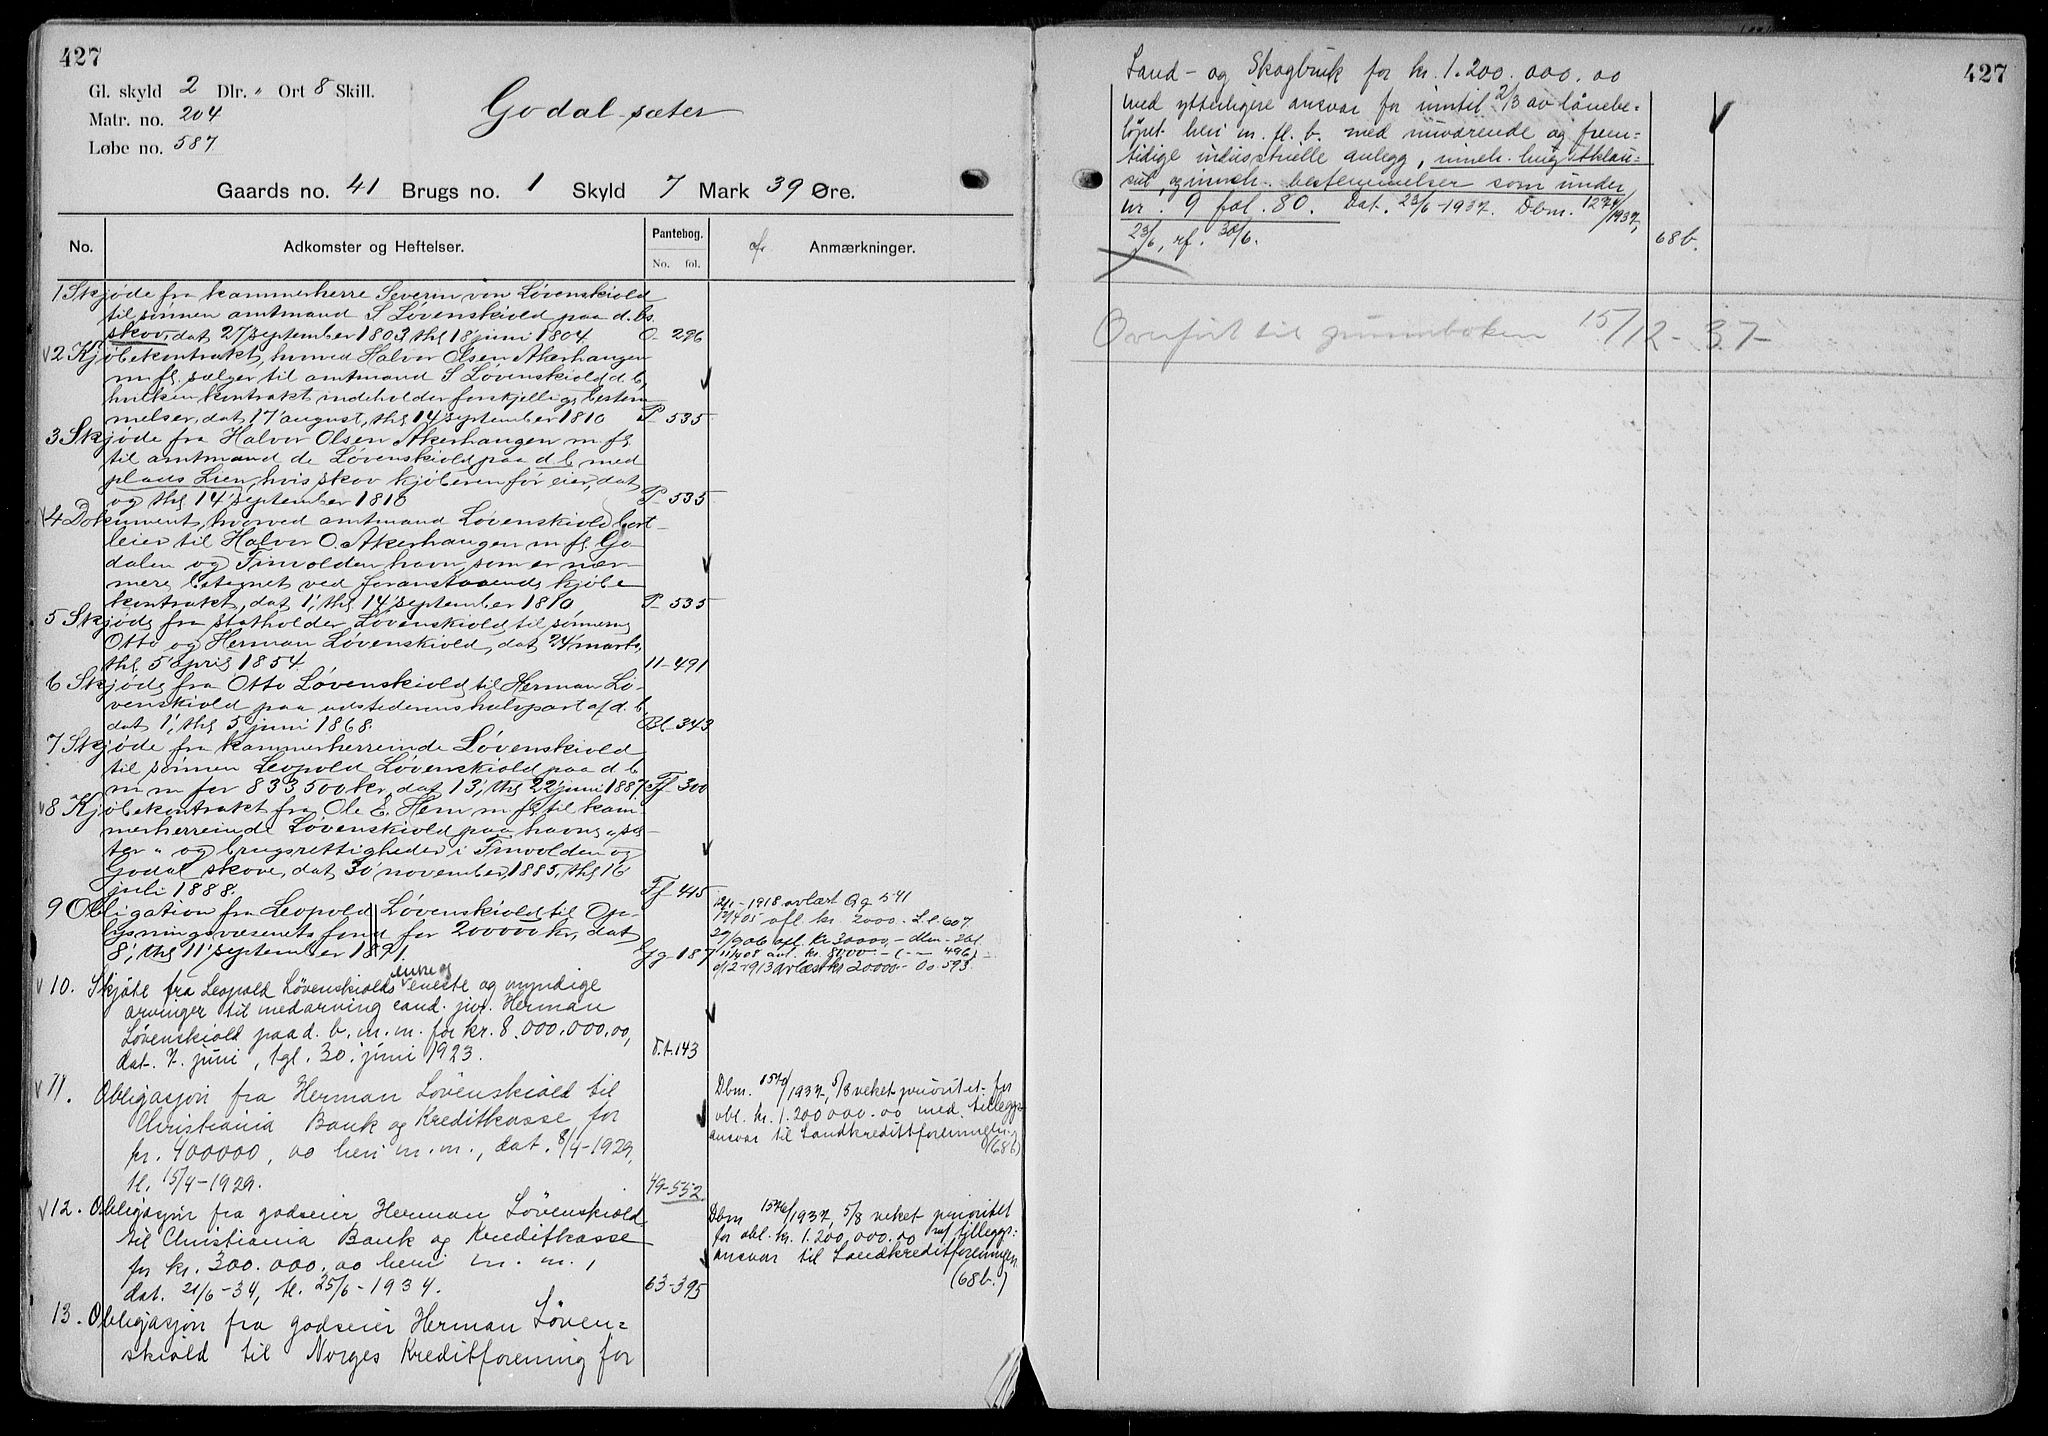 427
Gl. skyld 2 Dlr. " Ort 8 Skill.
Matr. no. 204
Løbe no. 587
Godal-sæter
Gaards no. 41 Brugs no. 1 Skyld 7 Mark 39 Øre.
No. Adkomster og Heftelser. Pantebog. No. fol. Anmærkninger.
1 Skjøde fra kammerherre Severin von Løvenskiold
til sønnen amtmand S Løvenskiold paa d. bs.
skov, dat 27 september 1803 thl 18 juni 1804 O- 296
2 Kjøbekontrakt, hvorved Halvor Olsen Akerhaugen
m. fl. sælger til amtmand S Løvenskiold d. b,
hvilken kontrakt indeholder forskjellige bestem
melser, dat 17 august, thl 14 september 1810 P- 535
3 Skjøde fra Halvor Olsen Akerhaugen m. fl.
til amtmand de Løvenskiold paa d. b. med
plads Lien, hvis skov kjøberen før eier, dat
og thl 14 september 1810 P- 535
4 Dokument, hvorved amtmand Løvenskiold bort-
leier til Halvor O. Akerhaugen m. fl. Go-
dalen og Finvolden havn, som er nær-
mere betegnet ved foranstaaende kjøbe
kontrakt, dat 1', thl 14' september 1810 P- 535
5 Skjøde fra statholder Løvenskiold til sønnerne
Otto og Herman Løvenskiold, dat 24' marts,
thl 5' april 1854. 11-491
6 Skjøde fra Otto Løvenskiold til Herman Lø-
venskiold paa udstederens halvpart af d. b,
dat 1', thl 5 juni 1868. Bl-343
7 Skjøde fra kammerherreinde Løvenskiold
til sønnen Leopold Løvenskiold paa d b
m m for 833500 kr, dat 13', thl 22' juni 1887 Ff 300
8 Kjøbekontrakt fra Ole E. Hem m. fl til kam-
merherreinde Løvenskiold paa havne "sæ-
ter" og brugsrettigheder i Finvolden og
Godal skove, dat 30 november 1885, thl 16
juli 1888. Ff-415
9 Obligation fra Leopold Løvenskiold til Op-
lysningsvæsenets fond for 200000 kr, dat
8', thl 11' september 1891. Gg-187
12/1-1918 avlæst Qq 541
17/4 05 afl kr. 2000.- L.l. 607
29/9 06 afl. kr 30000.-
11/4 08 avl. kr. 8000 - 496
2/12 1913 avlæst kr 20000.- Oo. 593.
10. Skjøte fra Leopold Løvenskiolds eneste og myndige
arvinger til medarving cand. jur. Herman
Løvenskiold paa d. b. m. m. for kr. 8.000.000,00,
dat. 7. juni, tgl. 30. juni 1923. 143
11. Obligasjon fra Herman Løvenskiold til
Christiania Bank og Kreditkasse for
kr. 400000, 00 heri m. m., dat. 8/4-1929,
tl. 15/4-1929. 49-552
Dbm. 1570/1937, 5/8 veket prioritet for
obl. kr. 1.200 000.00 med tillegg-
ansvar til Landkreditforeningen.
(68b)
12. Obligasjon fra godseier Herman Løvenskiold
til Christiania Bank og Kreditkasse
for kr. 300.000,00 heri m. m.,
dat. 21/6-34, tl. 25/6-1934. 63-395
Dbm 1570/1937, 5/8 veket prioritet
for obl. kr. 1.200.000.00 m/ tilleggs-
ansvar til Landkreditforeningen
(68b.)
13. Obligasjon fra godseier Herman Løven=
skiold til Norges Kreditforening for
427
Land- og Skogbruk for kr. 1.200.000.00
med ytterligere ansvar for inntil 2/3 av lånebe=
løpet heri m. fl. b. med nuværende og frem=
tidige industrielle anlegg, inneh. hugstklau=
sul, og inneh. bestemmelser som under
nr. 9 fol. 80. Dat. 23/6-1937. Dbm. 1274/1937,
23/6, rf. 30/6. 68b.
Overført til grunnboken 15/12-37-